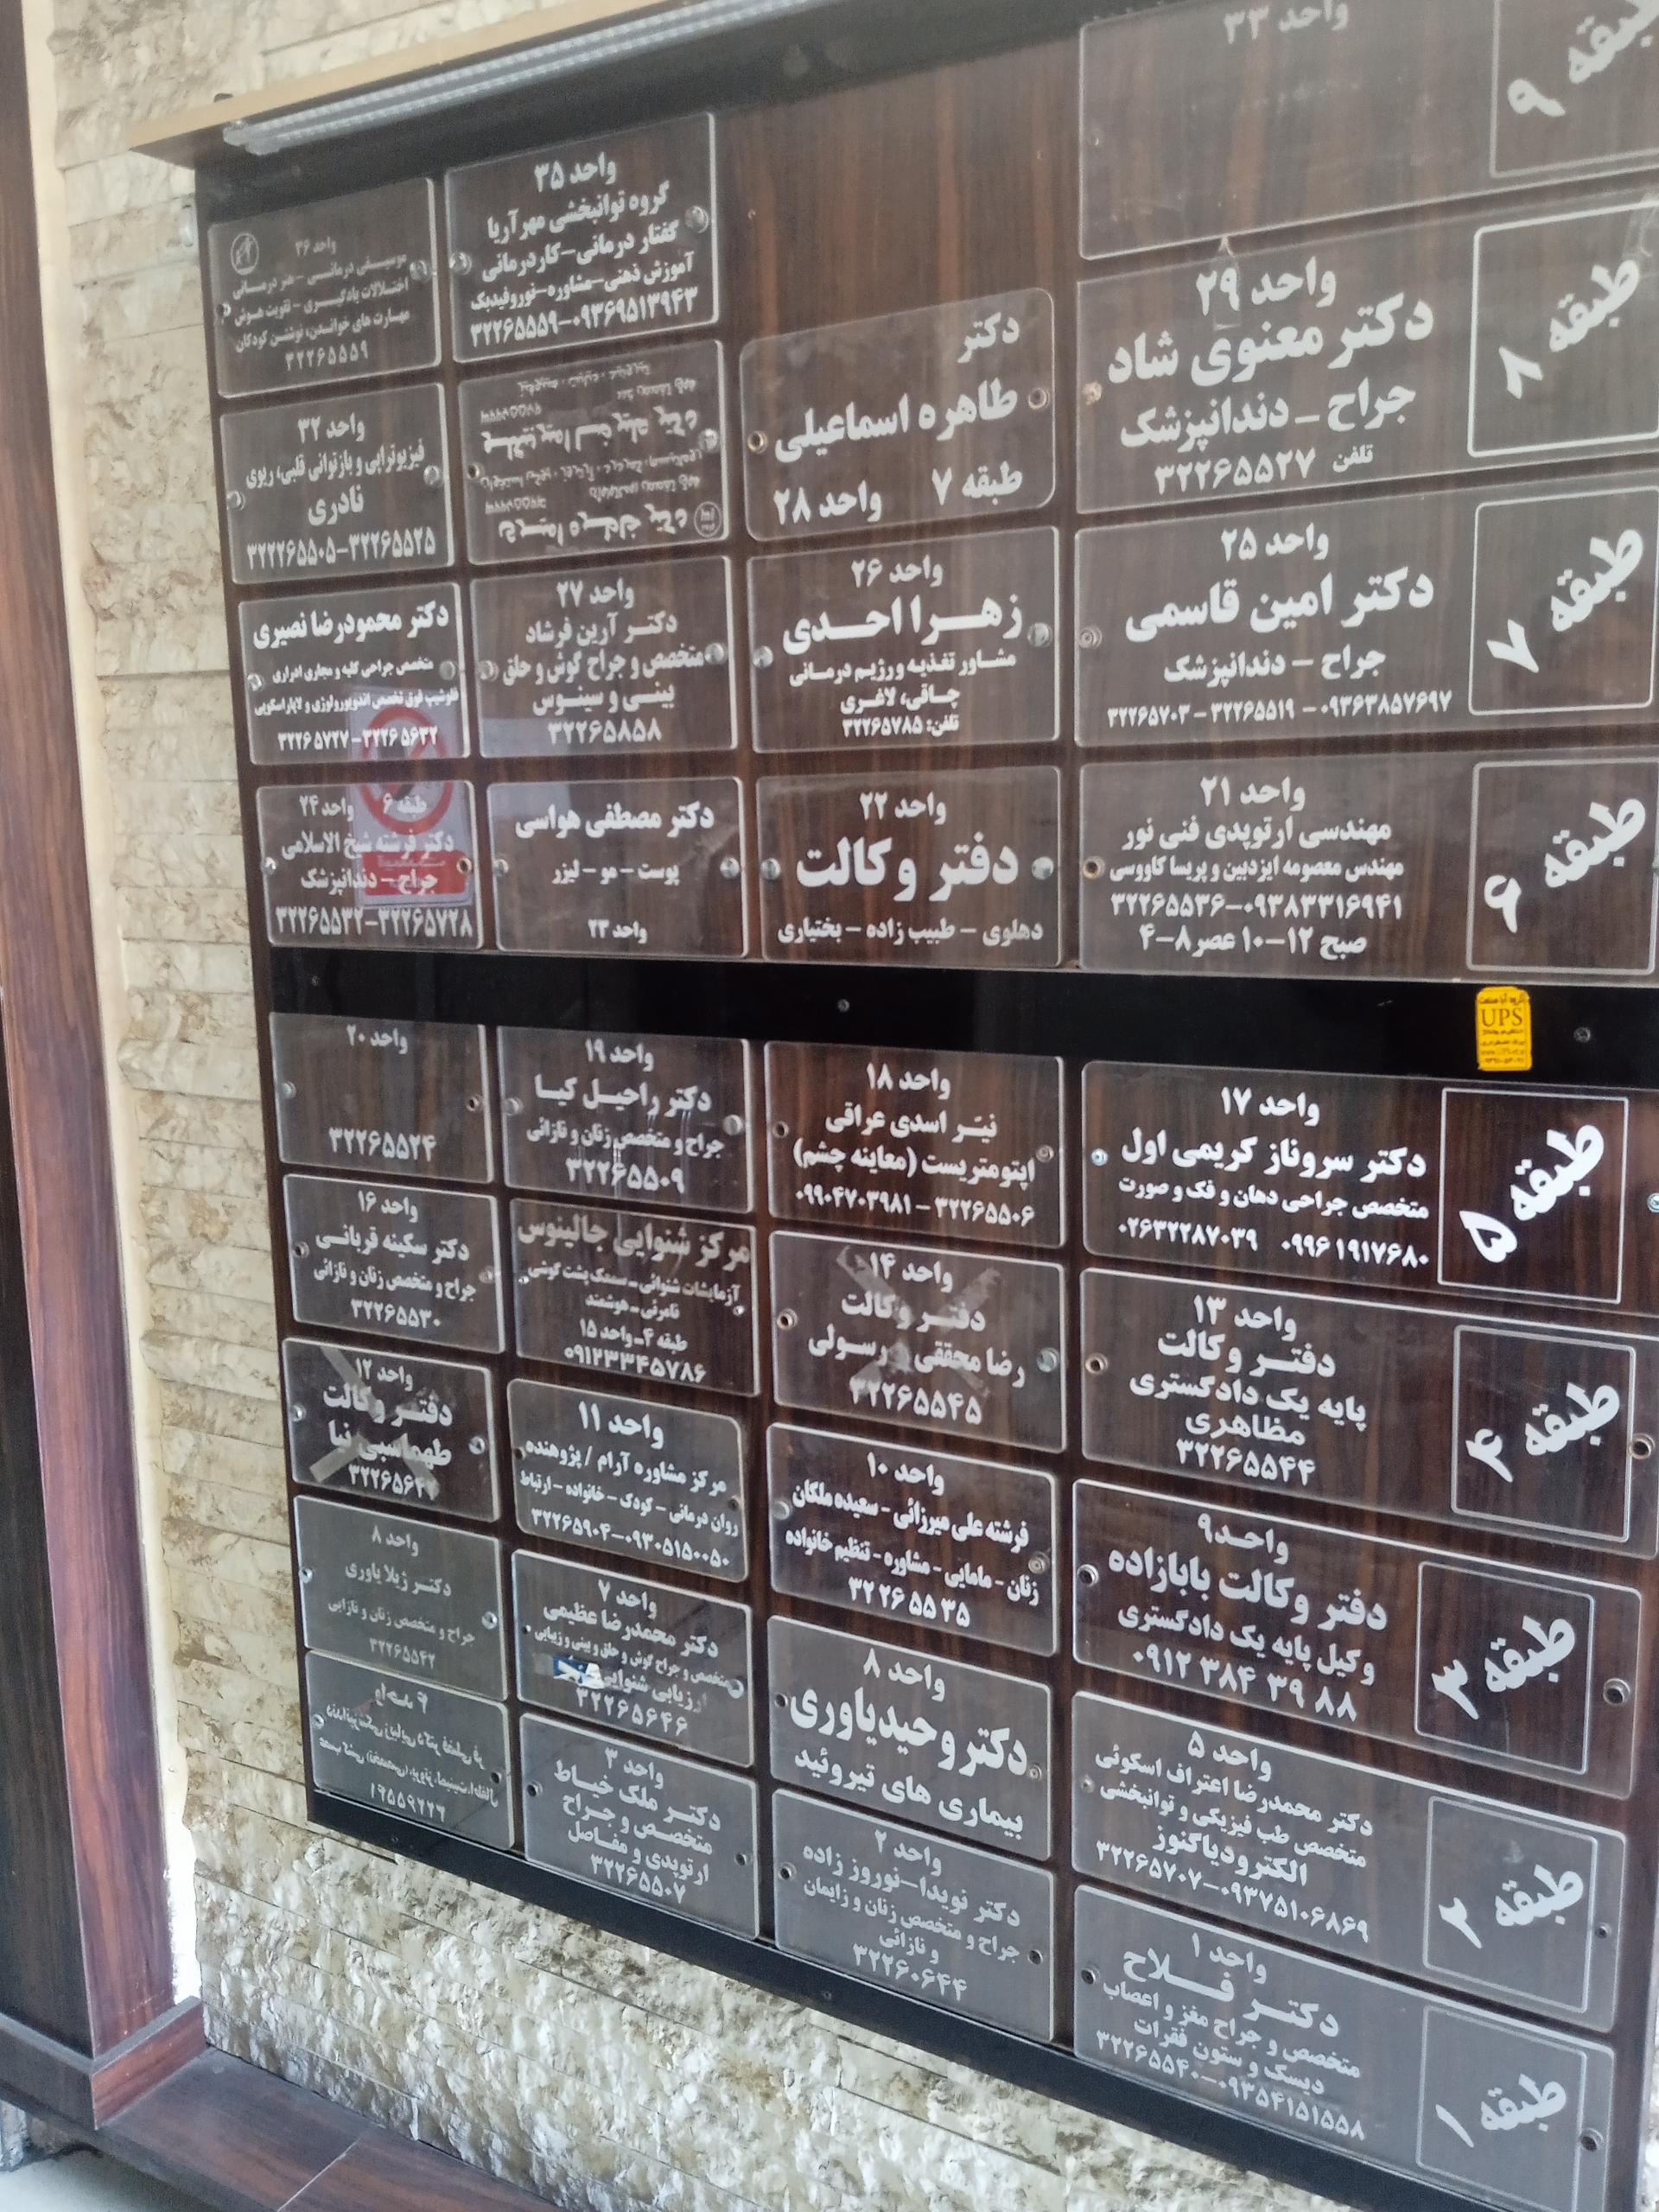 طبقه ۹
واحد ۳۳
واحد ۳۵
گروه توانبخشی مهرآریا
گفتار درمانی-کاردرمانی
آموزش ذهنی-مشاوره-نوروفیدبک
۳۲۲۶۵۵۵۹-۰۹۳۶۹۵۱۳۹۴۳
واحد ۳۶
موسیقی درمانی - هنر درمانی
اختلالات یادگیری - تقویت هوش
مهارت های خواندن، نوشتن کودکان
۳۲۲۶۵۵۵۹
طبقه ۸
واحد ۲۹
دکتر معنوی شاد
جراح - دندانپزشک
تلفن ۳۲۲۶۵۵۲۷
دکتر
طاهره اسماعیلی
طبقه ۷ واحد ۲۸
واحد ۳۲
فیزیوتراپی و بازتوانی قلبی، ریوی
نادری
۳۲۲۲۶۵۵۰۵-۳۲۲۶۵۵۲۵
طبقه ۷
واحد ۲۵
دکتر امین قاسمی
جراح - دندانپزشک
۳۲۲۶۵۷۰۳ - ۳۲۲۶۵۵۱۹ - ۰۹۳۶۳۸۵۷۶۹۷
واحد ۲۶
زهرا احدی
مشاور تغذیه و رژیم درمانی
چاقی، لاغری
تلفن: ۳۲۲۶۵۷۸۵
واحد ۲۷
دکتر آرین فرشاد
متخصص و جراح گوش و حلق
بینی و سینوس
۳۲۲۶۵۸۵۸
دکتر محمودرضا نصیری
متخصص جراحی کلیه و مجاری ادراری
فلوشیپ فوق تخصص اندویورولوژی و لاپاراسکوپی
۳۲۲۶۵۷۲۷-۳۲۲۶۵۶۳۲
طبقه ۶
واحد ۲۱
مهندسی ارتوپدی فنی نور
مهندس معصومه ایزدبین و پریسا کاووسی
۳۲۲۶۵۵۳۶-۰۹۳۸۳۳۱۶۹۴۱
صبح ۱۲-۱۰ عصر ۸-۴
واحد ۲۲
دفتر وکالت
دهلوی - طبیب زاده - بختیاری
دکتر مصطفی هواسی
پوست - مو - لیزر
واحد ۲۳
طبقه ۶ واحد ۲۴
دکتر فرشته شیخ الاسلامی
جراح - دندانپزشک
۳۲۲۶۵۵۳۲-۳۲۲۶۵۷۲۸
UPS
طبقه ۵
واحد ۱۷
دکتر سروناز کریمی اول
متخصص جراحی دهان و فک و صورت
۰۲۶۳۲۲۸۷۰۳۹ ۰۹۹۶۱۹۱۷۶۸۰
واحد ۱۸
نیّر اسدی عراقی
اپتومتریست (معاینه چشم)
۰۹۹۰۴۷۰۳۹۸۱ - ۳۲۲۶۵۵۰۶
واحد ۱۹
دکتر راحیل کیا
جراح و متخصص زنان و نازائی
۳۲۲۶۵۵۰۹
واحد ۲۰
۳۲۲۶۵۵۲۴
طبقه ۴
واحد ۱۳
دفتر وکالت
پایه یک دادگستری
مظاهری
۳۲۲۶۵۵۴۴
واحد ۱۴
دفتر وکالت
رضا محققی رسولی
۳۲۲۶۵۵۴۵
مرکز شنوایی جالینوس
آزمایشات شنوائی - سمعک پشت گوشی
نامرئی - هوشمند
طبقه ۴ - واحد ۱۵
۰۹۱۲۳۳۴۵۷۸۶
واحد ۱۶
دکتر سکینه قربانی
جراح و متخصص زنان و نازائی
۳۲۲۶۵۵۳۰
طبقه ۳
واحد ۹
دفتر وکالت بابازاده
وکیل پایه یک دادگستری
۰۹۱۲ ۳۸۴ ۳۹ ۸۸
واحد ۱۰
فرشته علی میرزائی - سعیده ملکان
زنان - مامایی - مشاوره - تنظیم خانواده
۳۲۲۶۵۵۳۵
واحد ۱۱
مرکز مشاوره آرام / پژوهنده
روان درمانی - کودک - خانواده - ارتباط
۳۲۲۶۵۹۰۴-۰۹۳۰۵۱۵۰۰۵۰
واحد ۱۲
دفتر وکالت
طهماسبی نیا
طبقه ۲
واحد ۵
دکتر محمدرضا اعتراف اسکوئی
متخصص طب فیزیکی و توانبخشی
الکترودیاگنوز
۳۲۲۶۵۷۰۷-۰۹۳۷۵۱۰۶۸۶۹
واحد ۸
دکتر وحید یاوری
بیماری های تیروئید
واحد ۷
دکتر محمدرضا عظیمی
متخصص و جراح گوش و حلق و بینی و زیبایی
ارزیابی شنوایی
۳۲۲۶۵۶۴۶
واحد ۸
دکتر ژیلا یاوری
جراح و متخصص زنان و نازایی
۳۲۲۶۵۵۴۲
طبقه ۱
واحد ۱
دکتر فلاح
متخصص و جراح مغز و اعصاب
دیسک و ستون فقرات
۳۲۲۶۵۵۴۰-۰۹۳۵۴۱۵۱۵۵۸
واحد ۲
دکتر نویدا-نوروز زاده
جراح و متخصص زنان و زایمان
و نازائی
۳۲۲۶۰۶۴۴
واحد ۳
دکتر ملک خیاط
متخصص و جراح
ارتوپدی و مفاصل
۳۲۲۶۵۵۰۷